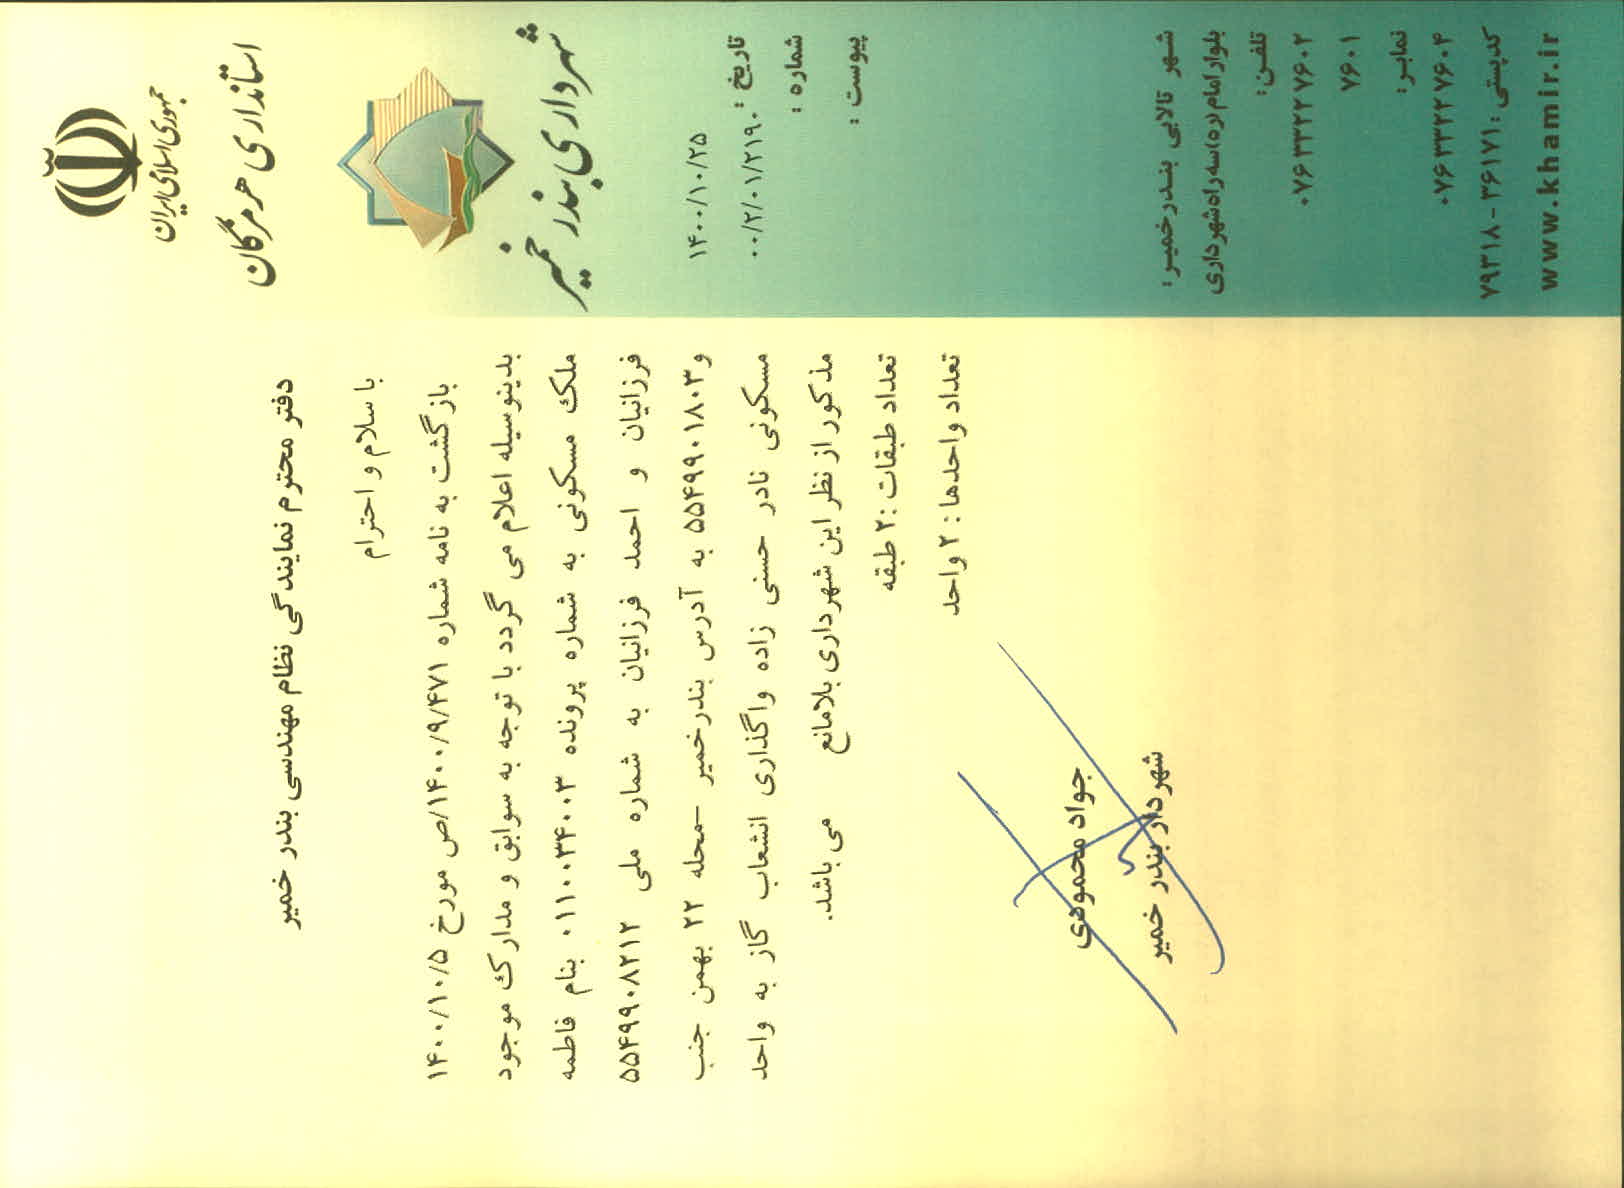 جمهوری اسلامی ایران
استانداری هرمزگان
شهرداری بندر خمیر
تاریخ : ۱۴۰۰/۱۰/۲۵
شماره : ۰۰/۲/۰۱/۲۱۹۰
پیوست :
دفتر محترم نمایندگی نظام مهندسی بندر خمیر
با سلام و احترام
بازگشت به نامه شماره ۱۴۰۰/۹/۴۷۱/ص مورخ ۱۴۰۰/۱۰/۵
بدینوسیله اعلام می گردد با توجه به سوابق و مدارک موجود
ملک مسکونی به شماره پرونده ۰۱۱۰۰۳۴۰۰۳ بنام فاطمه
فرزانیان و احمد فرزانیان به شماره ملی ۵۵۴۹۹۰۸۲۱۲
و ۵۵۴۹۹۰۱۸۰۳ به آدرس بندرخمیر –محله ۲۲ بهمن جنب
مسکونی نادر حسنی زاده واگذاری انشعاب گاز به واحد
مذکور از نظر این شهرداری بلامانع می باشد.
تعداد طبقات :۲ طبقه
تعداد واحدها : ۲ واحد
جواد محمودی
شهردار بندر خمیر
شهر تالابی بندرخمیر:
بلوار امام (ره) سه راه شهرداری
تلفن:
۰۷۶۳۳۲۲۷۶۰۲
۷۶۰۱
نمابر:
۰۷۶۳۳۲۲۷۶۰۴
کدپستی: ۷۹۳۱۸-۳۶۱۷۱
www.khamir.ir